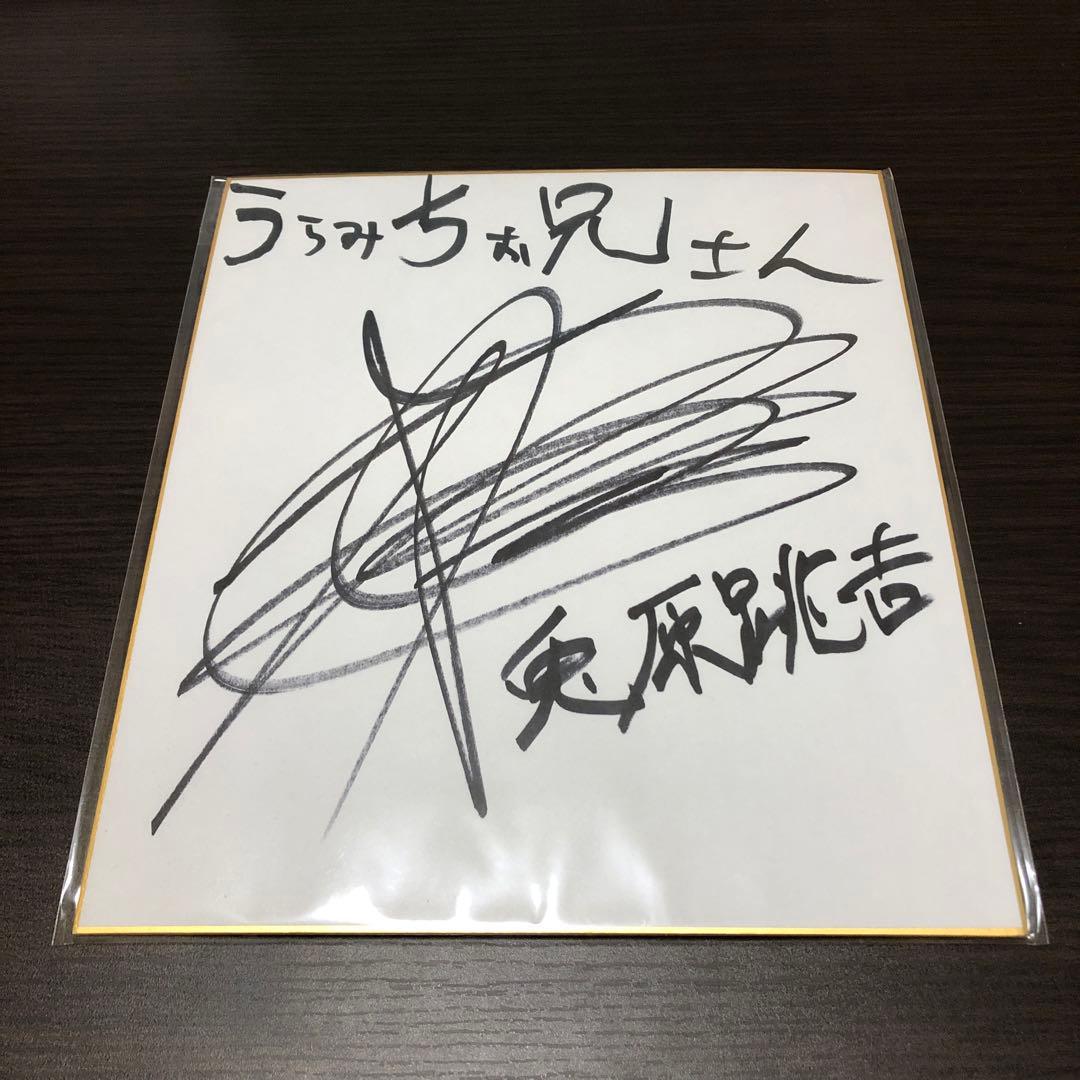 うらみちお兄さん
兎原跳吉